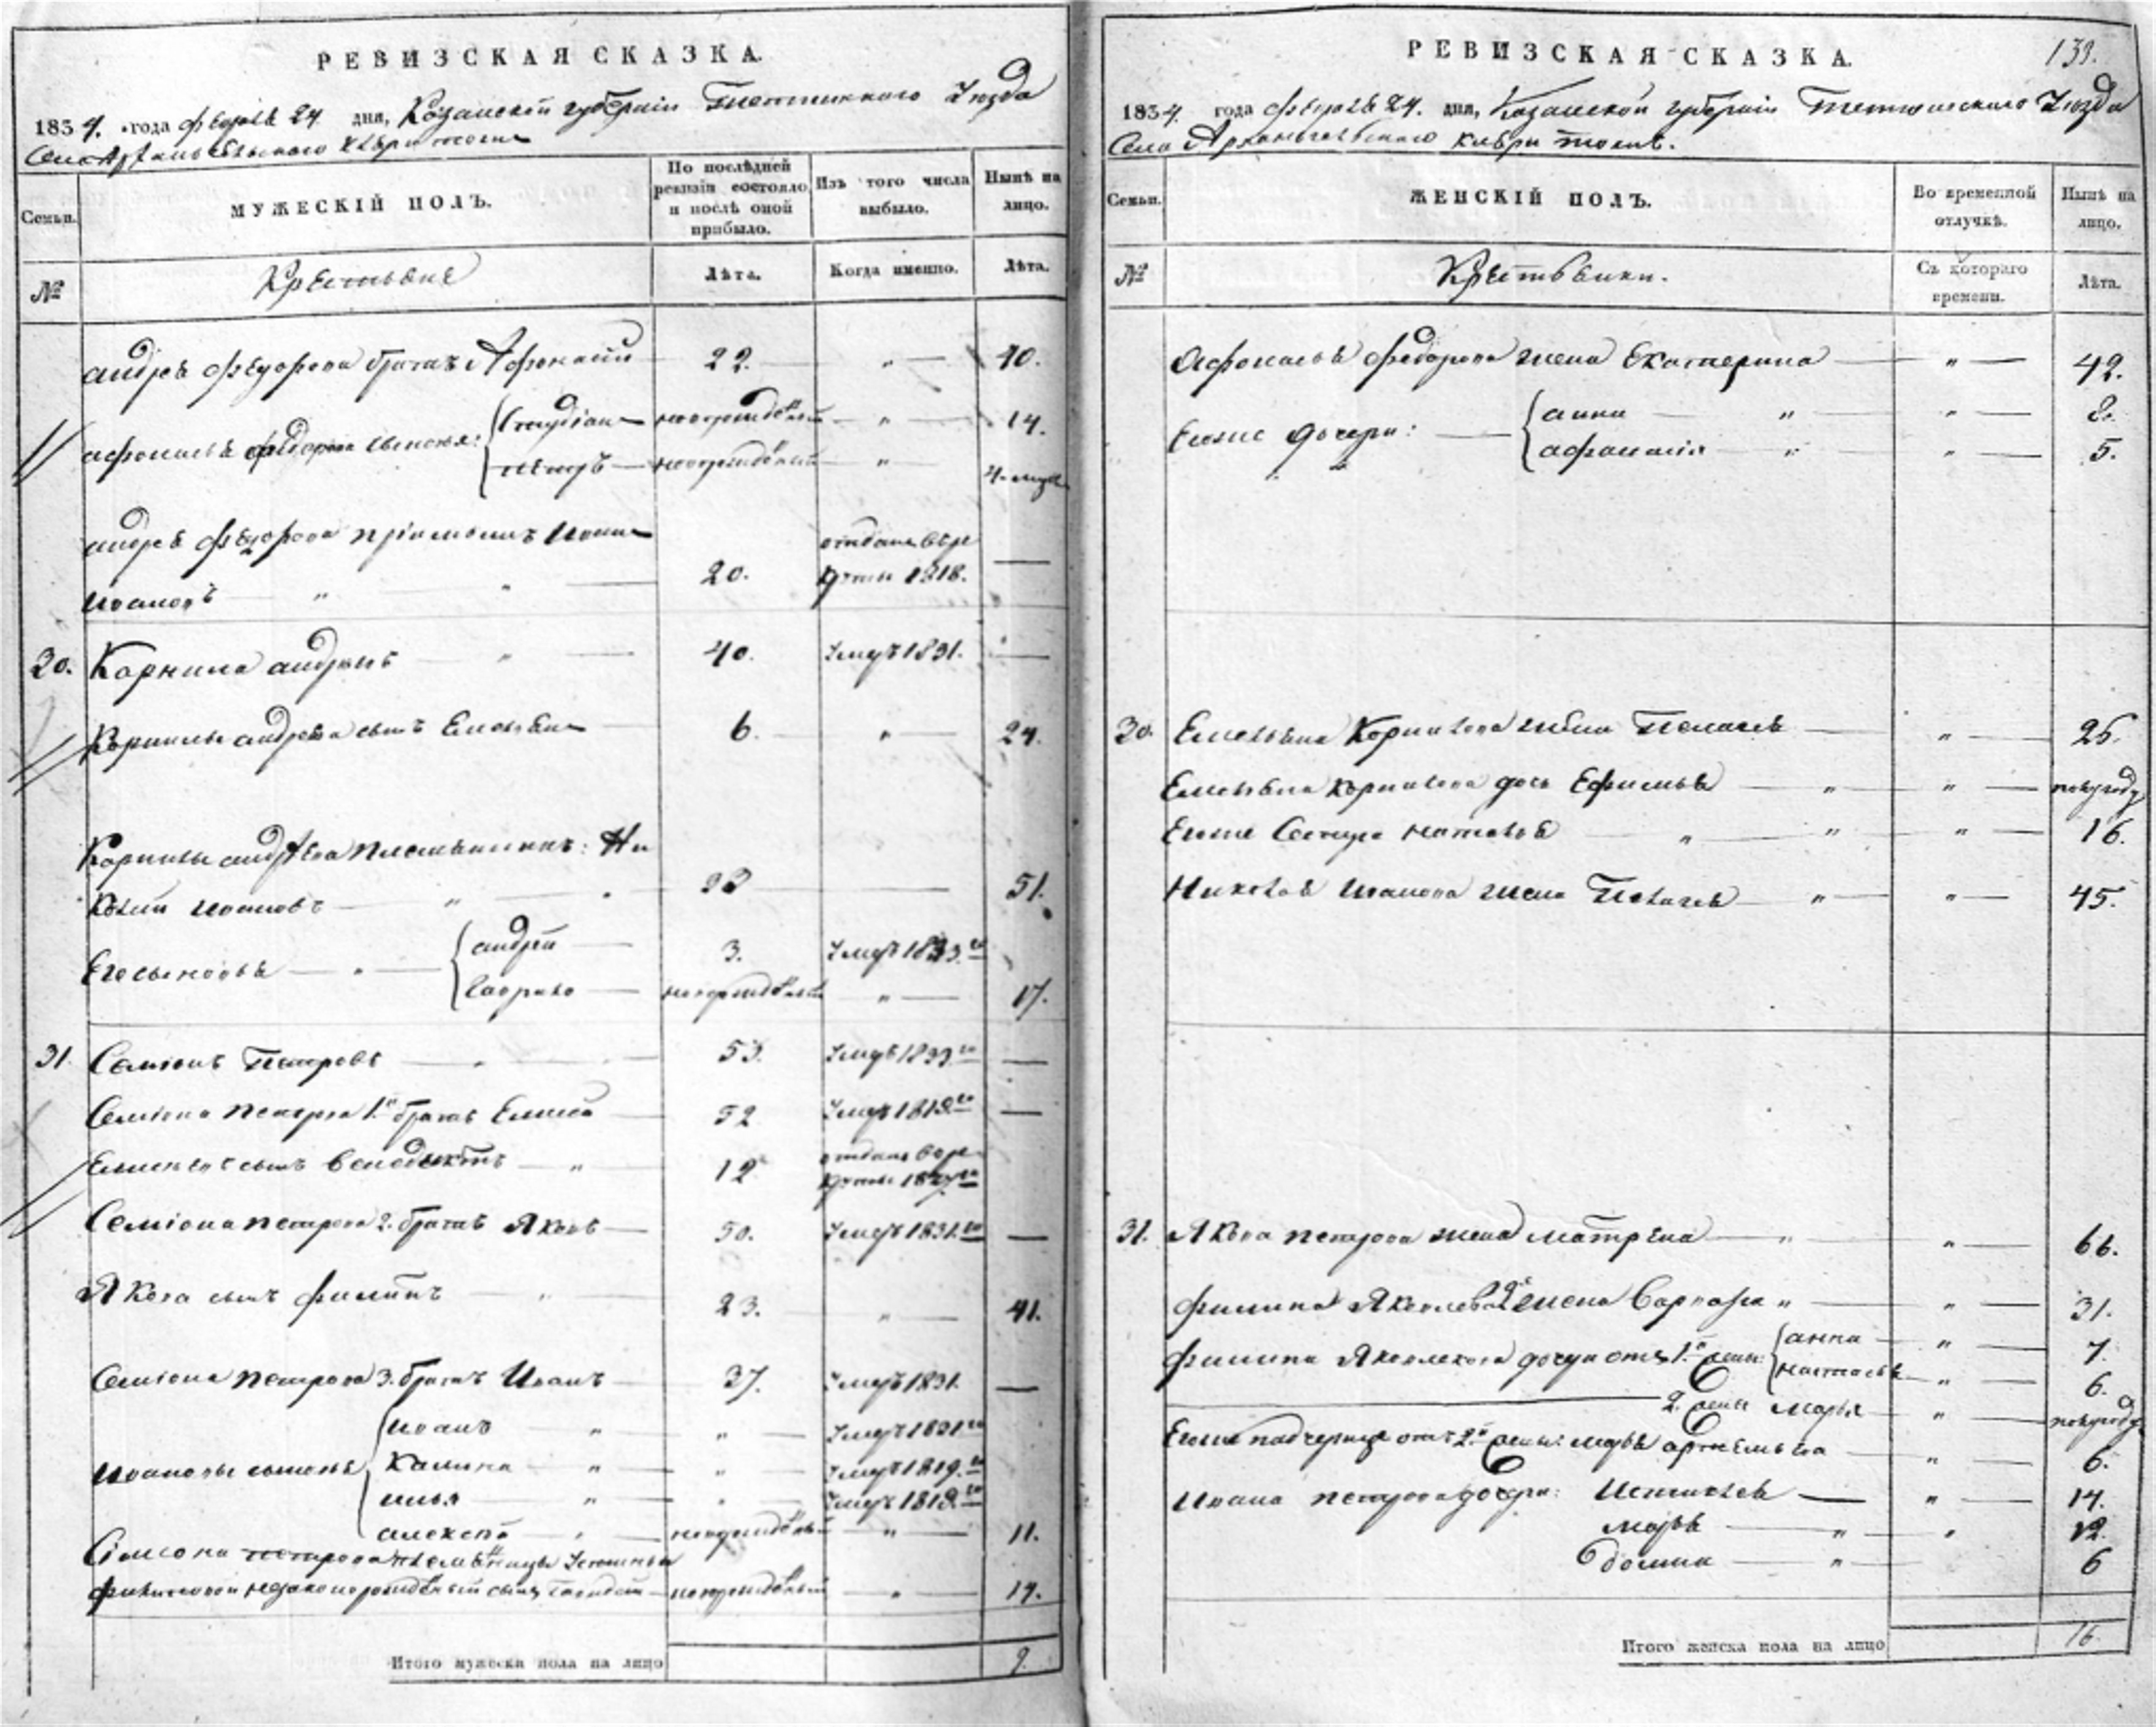 РЕВИЗСКАЯ СКАЗКА.
1834. года февраля 24 дня, Казанской губернии Тетюшскаго Уезда
Села Архангельскаго
Семьи.
МУЖЕСКІЙ ПОЛЪ.
По послѣдней ревизіи состояло и послѣ оной прибыло.
Изъ того числа выбыло.
Нынѣ на лицо.
№
Крестьяне
Лѣта.
Когда именно.
Лѣта.
андрея Федорова братъ Афонасій 22. " 40.
афонасья федорова сыновья: новорожденый " 14.
петръ новорожденый " 4. мца
андрея федорова пріимышъ Иванъ
отданъ въ ре
Ивановъ " " 20. круты 1818. —
30. Корнила андреевъ " 40. Умеръ 1831. —
Корнилы андреева сынъ Емельянъ 6. " 24.
Корнилы андреева племянникъ: Ни
колай ивановъ " 33 — 51.
Его сыновья " андрей 3. Умеръ 1833.го
гаврило новорожденый " 17.
31. Семіонъ Петровъ " 53. Умеръ 1833го —
Семіона петрова 1.й братъ Елисей 52 Умеръ 1819го —
отданъ въ ре
Елисеевъ сынъ Бенедиктъ " 12 круты 1827го
Семіона петрова 2. братъ Яковъ 50. Умеръ 1831.го —
Якова сынъ филипъ " 23. " 41.
Семіона петрова 3. братъ Иванъ 37. Умеръ 1831. —
иванъ " " Умеръ 1831го
Ивановы сыновья Калина " " Умеръ 1819.го
илья " " Умеръ 1819.го
алексей " новорожденый " 11.
Семіона петрова племянницы Устиньи
филиповой незаконорожденый сынъ новорожденый " 14.
Итого мужеска пола на лицо 9.
РЕВИЗСКАЯ СКАЗКА.
139.
1834. года февраля 24. дня, Казанской губерніи Тетюшскаго Уезда
Села Архангельскаго
Семьи.
ЖЕНСКІЙ ПОЛЪ.
Во временной отлучкѣ.
Нынѣ на лицо.
№
Крестьянки.
Съ котораго времени.
Лѣта.
Афонасья федорова жена Екатерина " 42.
Егоже дочери: анна " " 8.
афанасія " " 5.
30. Емельяна Корнилова жена Пелагея " 25.
Емельяна корнилова дочь Ефимья " " полугоду
Егоже Сестра наталья " " " 16.
Николая иванова жена Пелагея " " 45.
31. Якова петрова жена матрена " " 66.
филипа Яковлева 2я жена Варвара " " 31.
филипа Яковлевова дочери отъ 1.й жены: анна " 7.
настасья " 6.
2. жены марья " полугоду
Егоже падчерица отъ 2й жены: марья артемьева " 6.
Ивана петрова дочери: " 14.
марья " " 12.
домна " 6
Итого женска пола на лицо 16.